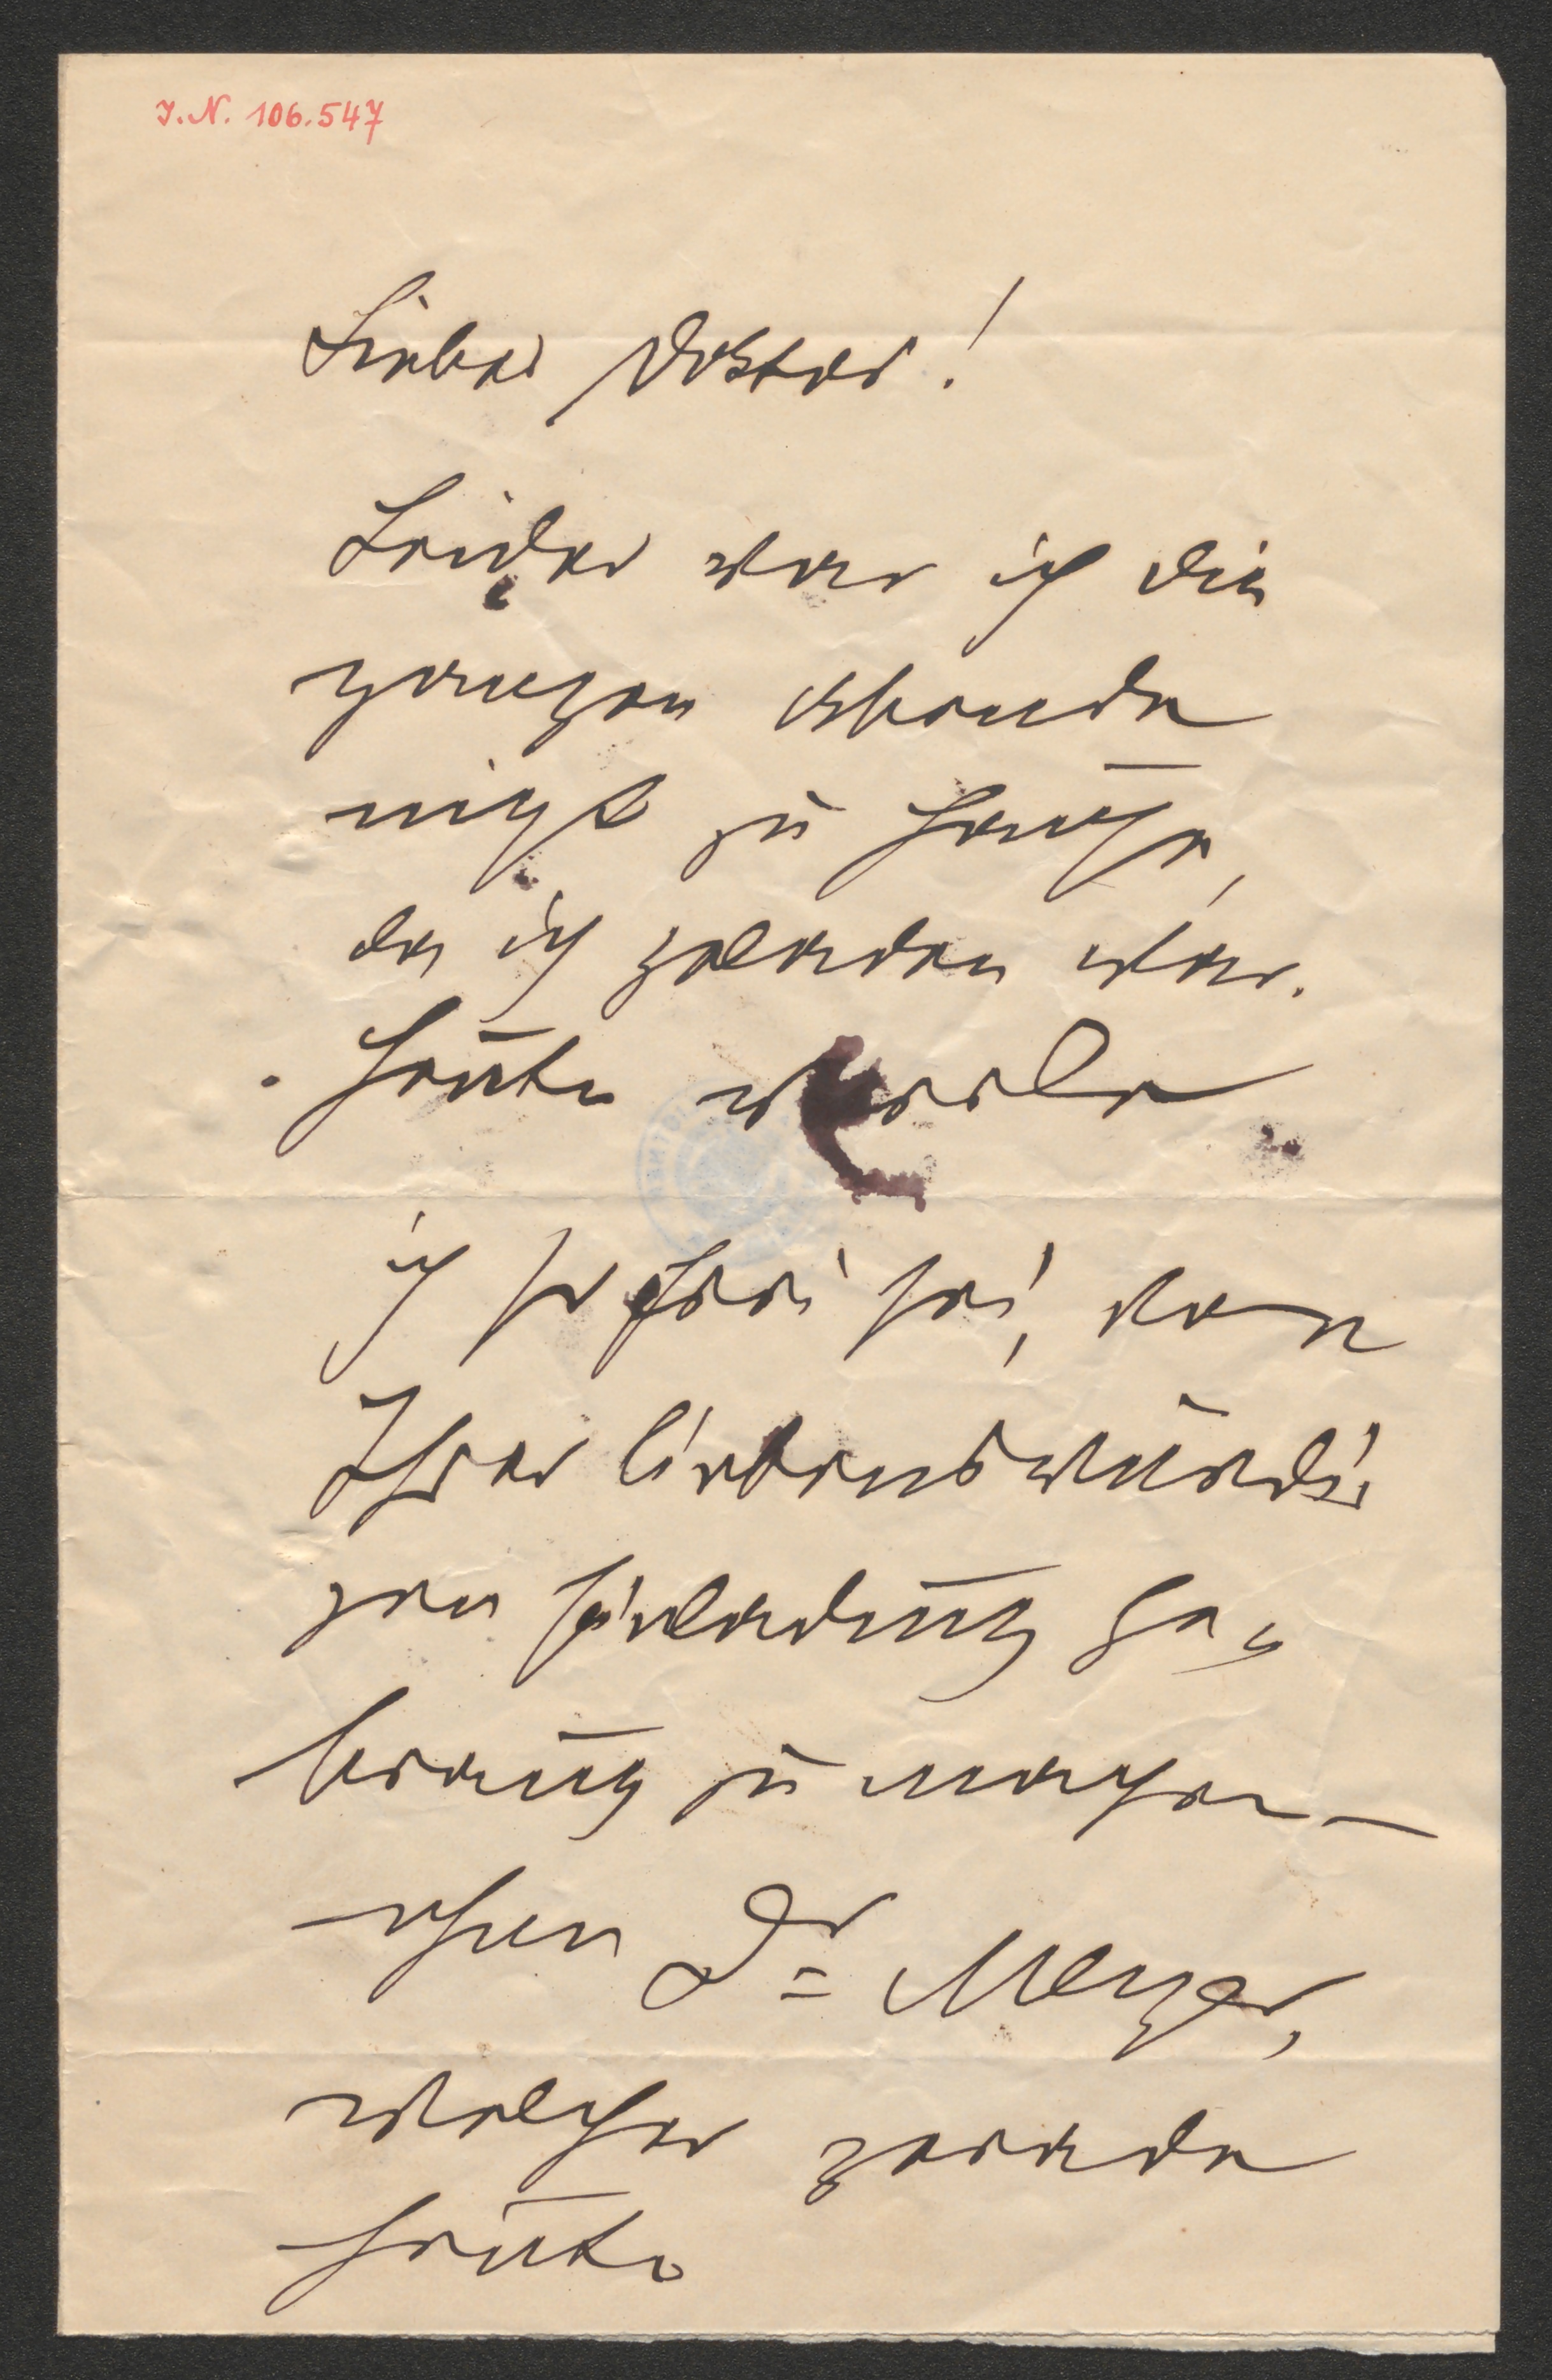 I.N. 106.547
Lieber Doktor!
Leider war ich die
ganzen Abende
nicht zu Hause,
da ich geladen war.
Heute werde
ich so frei sein, von
Ihrer liebenswürdi-
gen Einladung Ge-
brauch zu machen
Dr= Meyer,
welcher gerade
heute